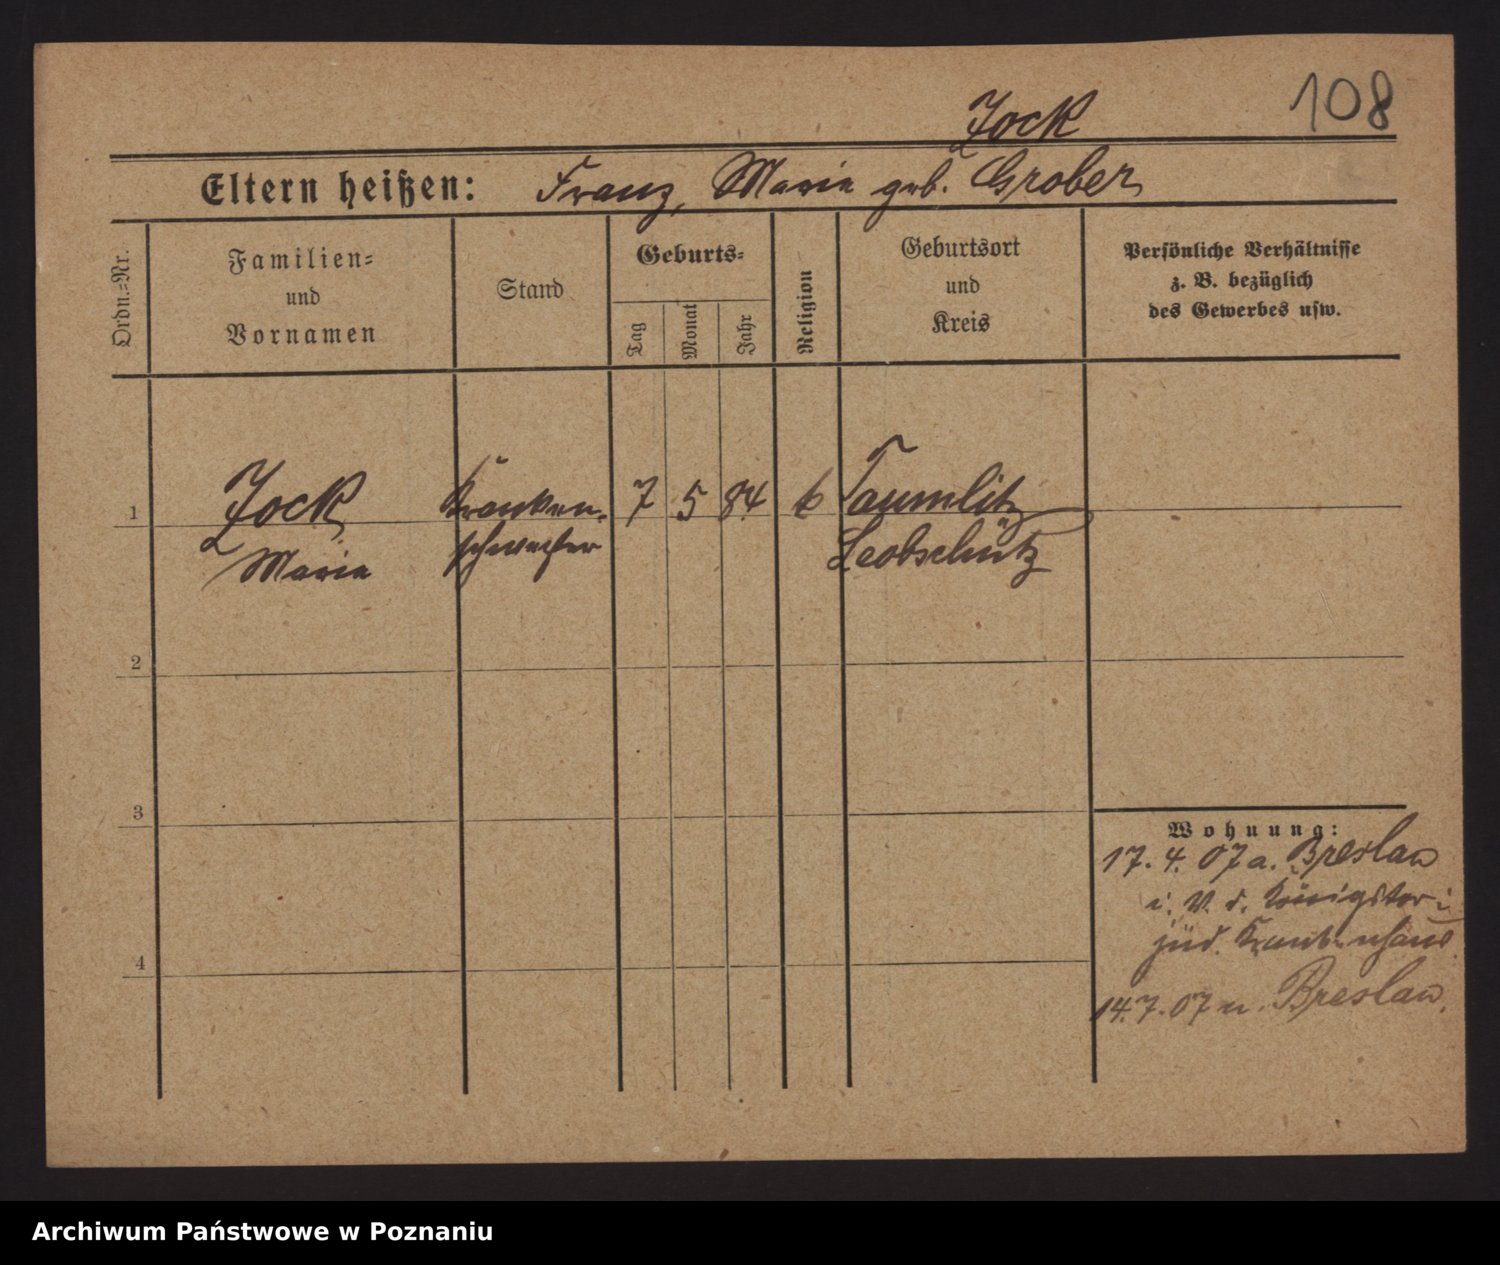 108
Jock
Eltern heißen: Franz, Marie geb. Grober
Ordn.=Nr.
Familien=
und
Vornamen
Stand
Geburts=
Tag
Monat
Jahr
Religion
Geburtsort
und
Kreis
Persönliche Verhältnisse
z. B. bezüglich
des Gewerbes usw.
1 Jock Kranken- 7 5 84 k Taumlitz
Marie schwester Leobschütz
2
3
4
Wohnung:
17. 4. 07 a. Breslau
i. V. d. Königstor
jüd. Krankenhaus.
14. 7. 07 n. Breslau.
Archiwum Państwowe w Poznaniu